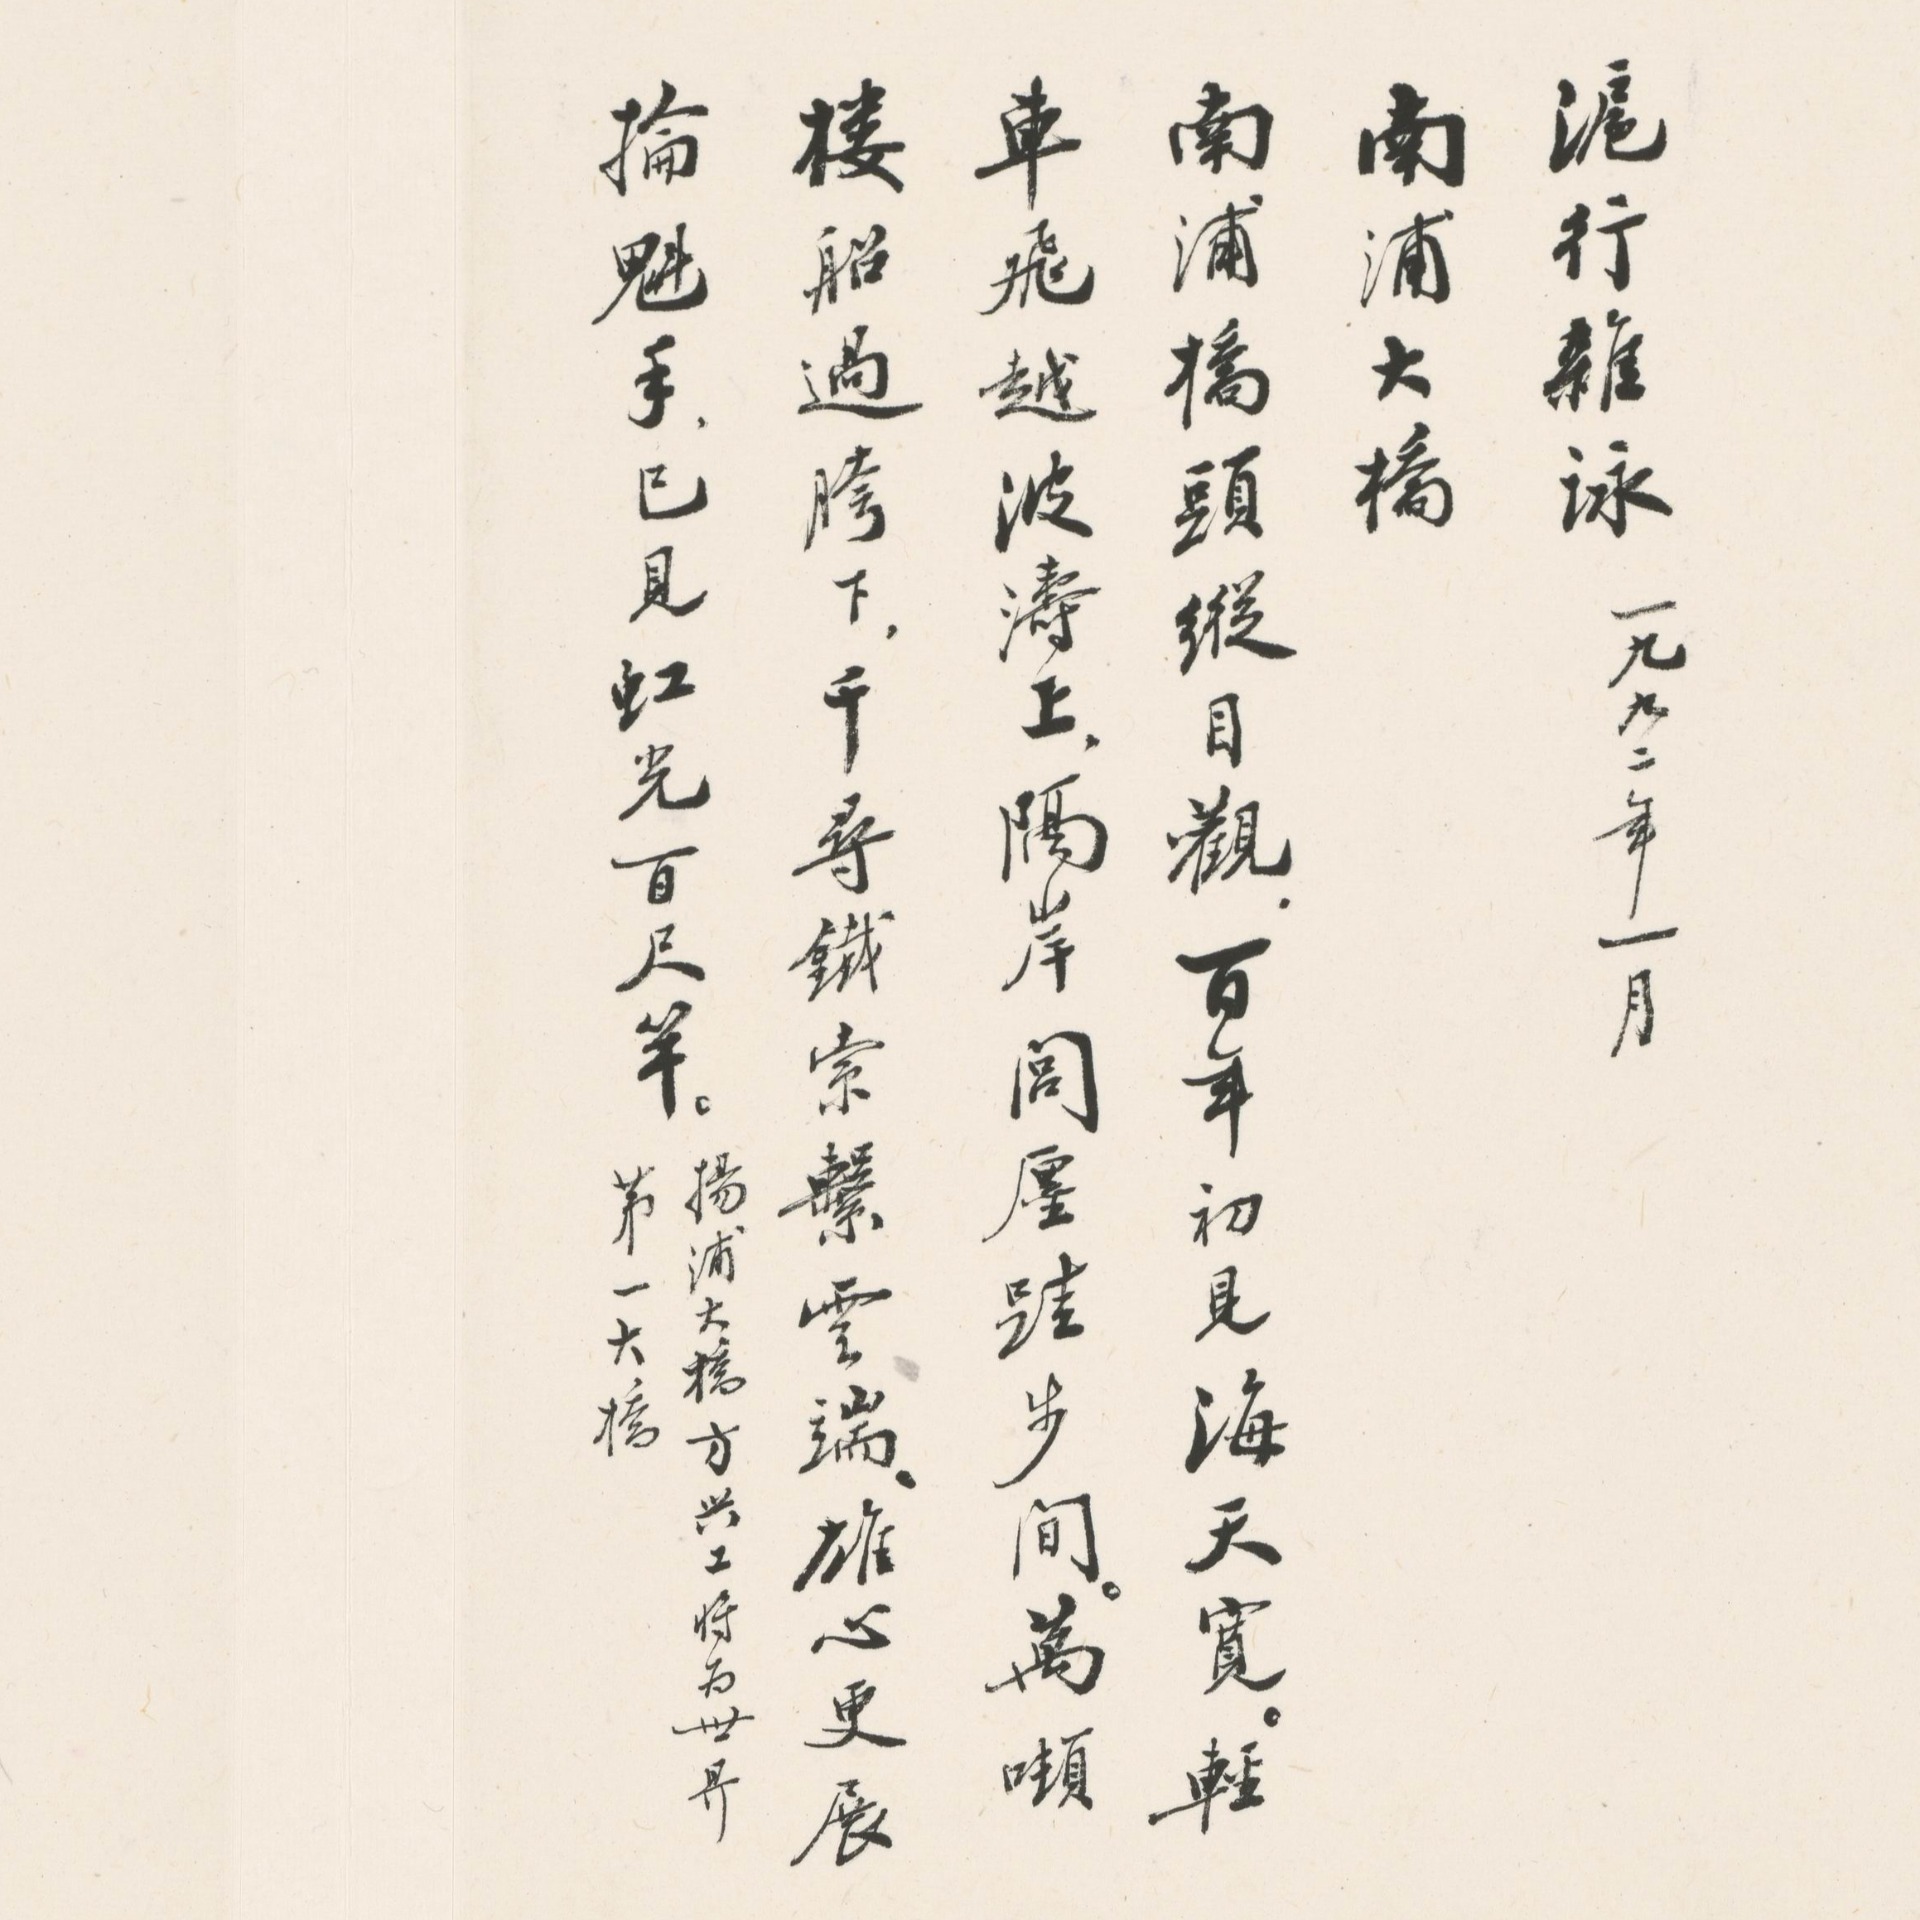 滬行雜詠 一九九二年一月
南浦大橋
南浦橋頭縱目觀，百年初見海天寬。輕
車飛越波濤上，隔岸閭廛跬步間。萬噸
楼船過胯下，千尋鐵索繫雲端。雄心更展
掄魁手，已見虹光百尺竿。
揚浦大橋方兴工将为世界
第一大橋